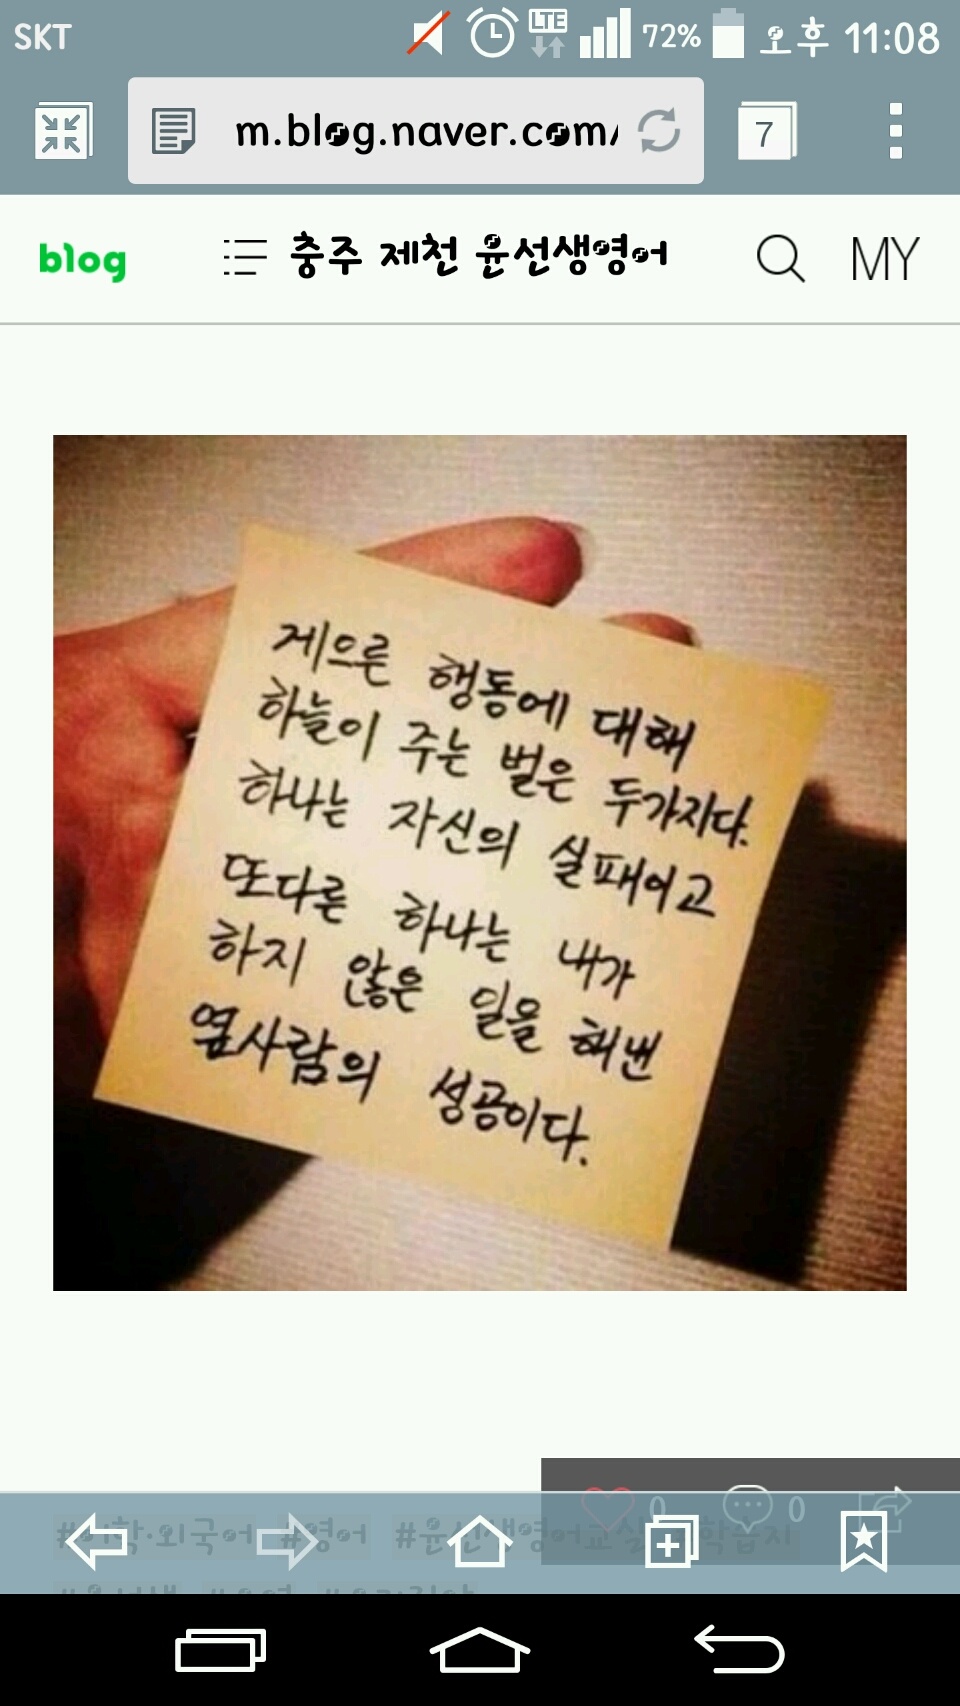 SKT LTE 72% 오후 11:08
m.blog.naver.com/ 7
blog 충주 제천 윤선생영어 MY
게으른 행동에 대해
하늘이 주는 벌은 두가지다.
하나는 자신의 실패이고
또다른 하나는 내가
하지 않은 일을 해낸
옆사람의 성공이다.
0 0
#어학·외국어 #영어